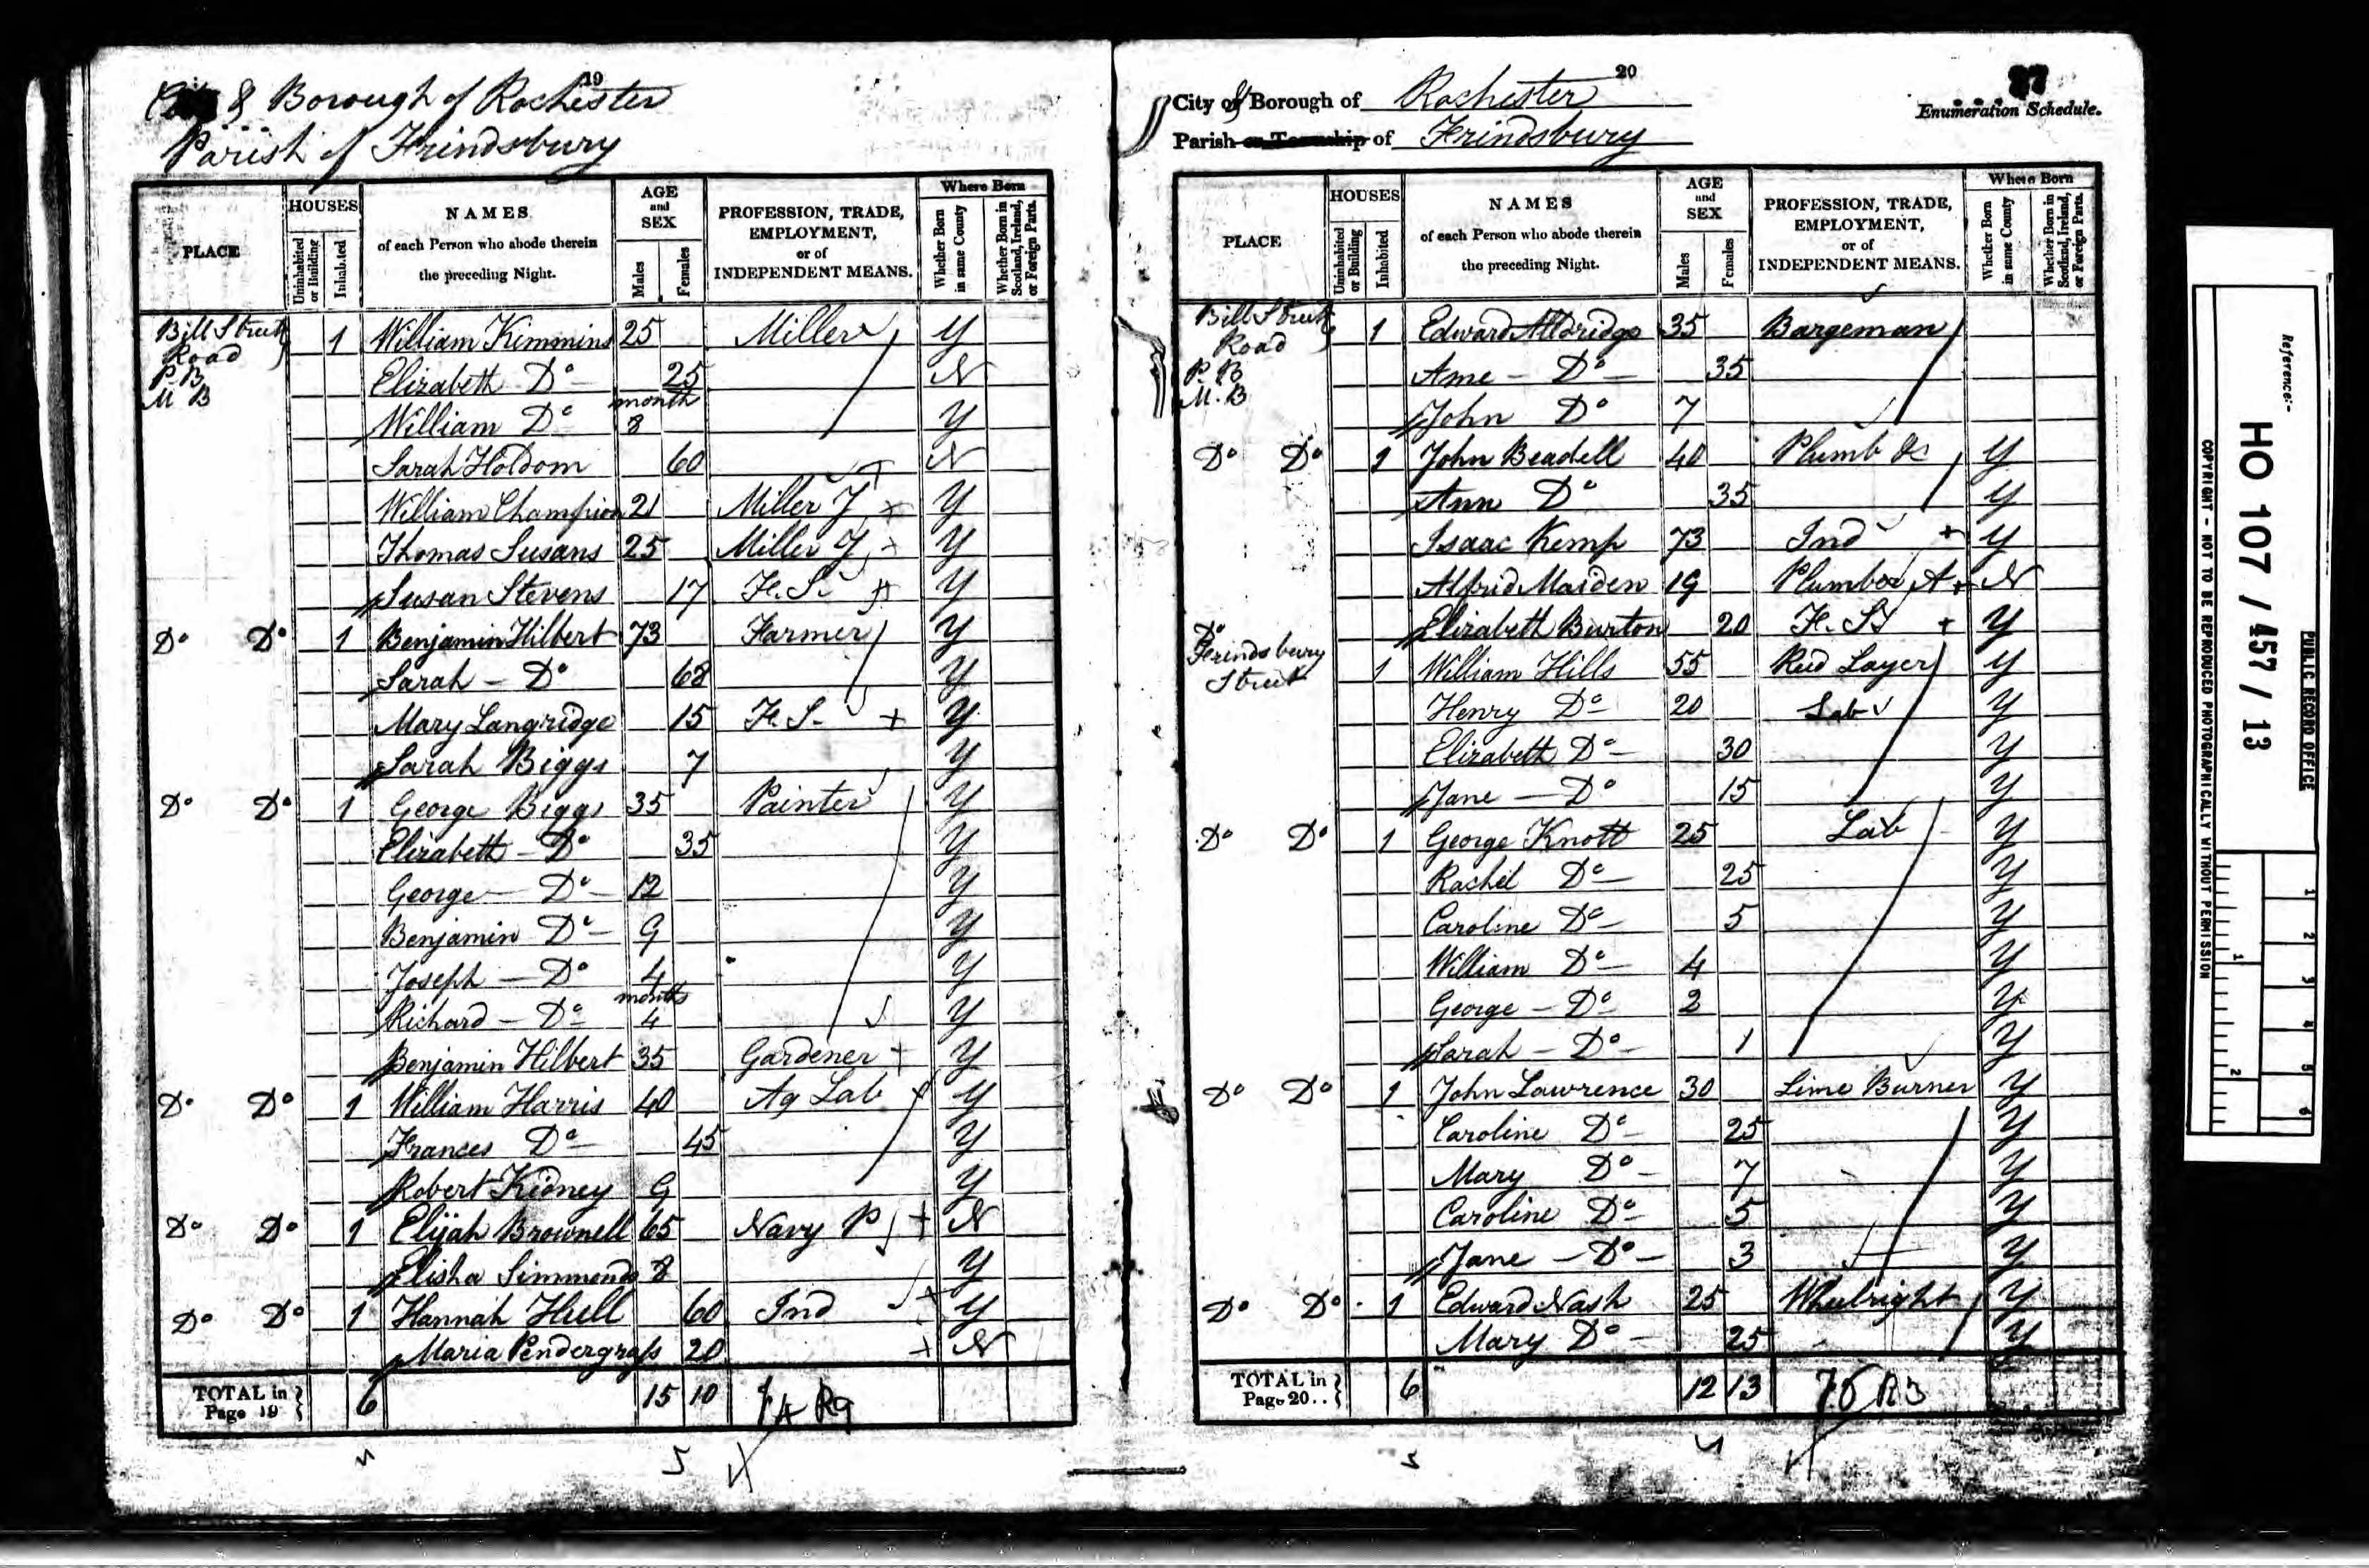 19
& Borough of Rochester
Parish of Frindsbury
PLACE
HOUSES
Uninhabited or Building
Inhabited
NAMES
of each Person who abode therein
the preceding Night.
AGE
and
SEX
Males
Females
PROFESSION, TRADE,
EMPLOYMENT,
or of
INDEPENDENT MEANS.
Where Born
Whether Born in same County
Whether Born in Scotland, Ireland, or Foreign Parts.
Bill Street Road 1 William Kimmins 25 Miller Y
P B Elizabeth Do 25 N
M B William Do 8 month Y
Sarah Holdom 60 N
William Champion 21 Miller J Y
Thomas Susans 25 Miller J Y
Susan Stevens 17 F. S. Y
Do Do 1 Benjamin Hilbert 73 Farmer Y
Sarah - Do 68 Y
Mary Langridge 15 F. S. Y
Sarah Biggs 7 Y
Do Do 1 George Biggs 35 Painter Y
Elizabeth - Do 35 Y
George - Do 12 Y
Benjamin Do 9 Y
Joseph - Do 4 Y
Richard - Do 4 months Y
Benjamin Hilbert 35 Gardener Y
Do Do 1 William Harris 40 Ag Lab Y
Frances Do 45 Y
Robert Kidney 9 Y
Do Do 1 Elijah Brownell 65 Navy P N
Elisha Simmonds 8 Y
Do Do 1 Hannah Hull 60 Ind Y
Maria Pendergrass 20 N
TOTAL in Page 19 6 15 10
20
City & Borough of Rochester
Parish or Township of Frindsbury
27
Enumeration Schedule.
PLACE
HOUSES
Uninhabited or Building
Inhabited
NAMES
of each Person who abode therein
the preceding Night.
AGE
and
SEX
Males
Females
PROFESSION, TRADE,
EMPLOYMENT,
or of
INDEPENDENT MEANS.
Where Born
Whether Born in same County
Whether Born in Scotland, Ireland, or Foreign Parts.
Bill Street Road 1 Edward Alldridge 35 Bargeman
P B Ame - Do 35
M. B John Do 7
Do Do 1 John Beadell 40 Plumb &c Y
Ann Do 35 Y
Isaac Kemp 73 Ind Y
Alfrid Maiden 19 Plumber A N
Elizabeth Burton 20 F. S. Y
Do Frindsbury Street 1 William Hills 55 Layer Y
Henry Do 20 Lab Y
Elizabeth Do 30 Y
Jane - Do 15 Y
Do Do 1 George Knott 25 Lab Y
Rachel Do 25 Y
Caroline Do 5 Y
William Do 4 Y
George - Do 2 Y
Sarah - Do 1 Y
Do Do 1 John Lawrence 30 Lime Burner Y
Caroline Do 25 Y
Mary Do 7 Y
Caroline Do 5 Y
Jane - Do 3 Y
Do Do 1 Edward Nash 25 Wheelright Y
Mary Do 25 Y
TOTAL in Page 20.. 6 12 13
Reference:-
HO 107 / 457 / 13
PUBLIC RECORD OFFICE
COPYRIGHT - NOT TO BE REPRODUCED PHOTOGRAPHICALLY WITHOUT PERMISSION
1
2
3
4
5
6
1
2